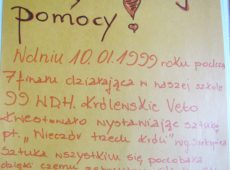 pomocy!
W dniu 10.01.1999 roku podczas
7 finału działająca w naszej szkole
99 NDH. Królewskie Veto
kwestowało wystawiając sztukę
pt. "Wieczór trzech króli"
Sztuka wszystkim się podobała
dzięki czemu